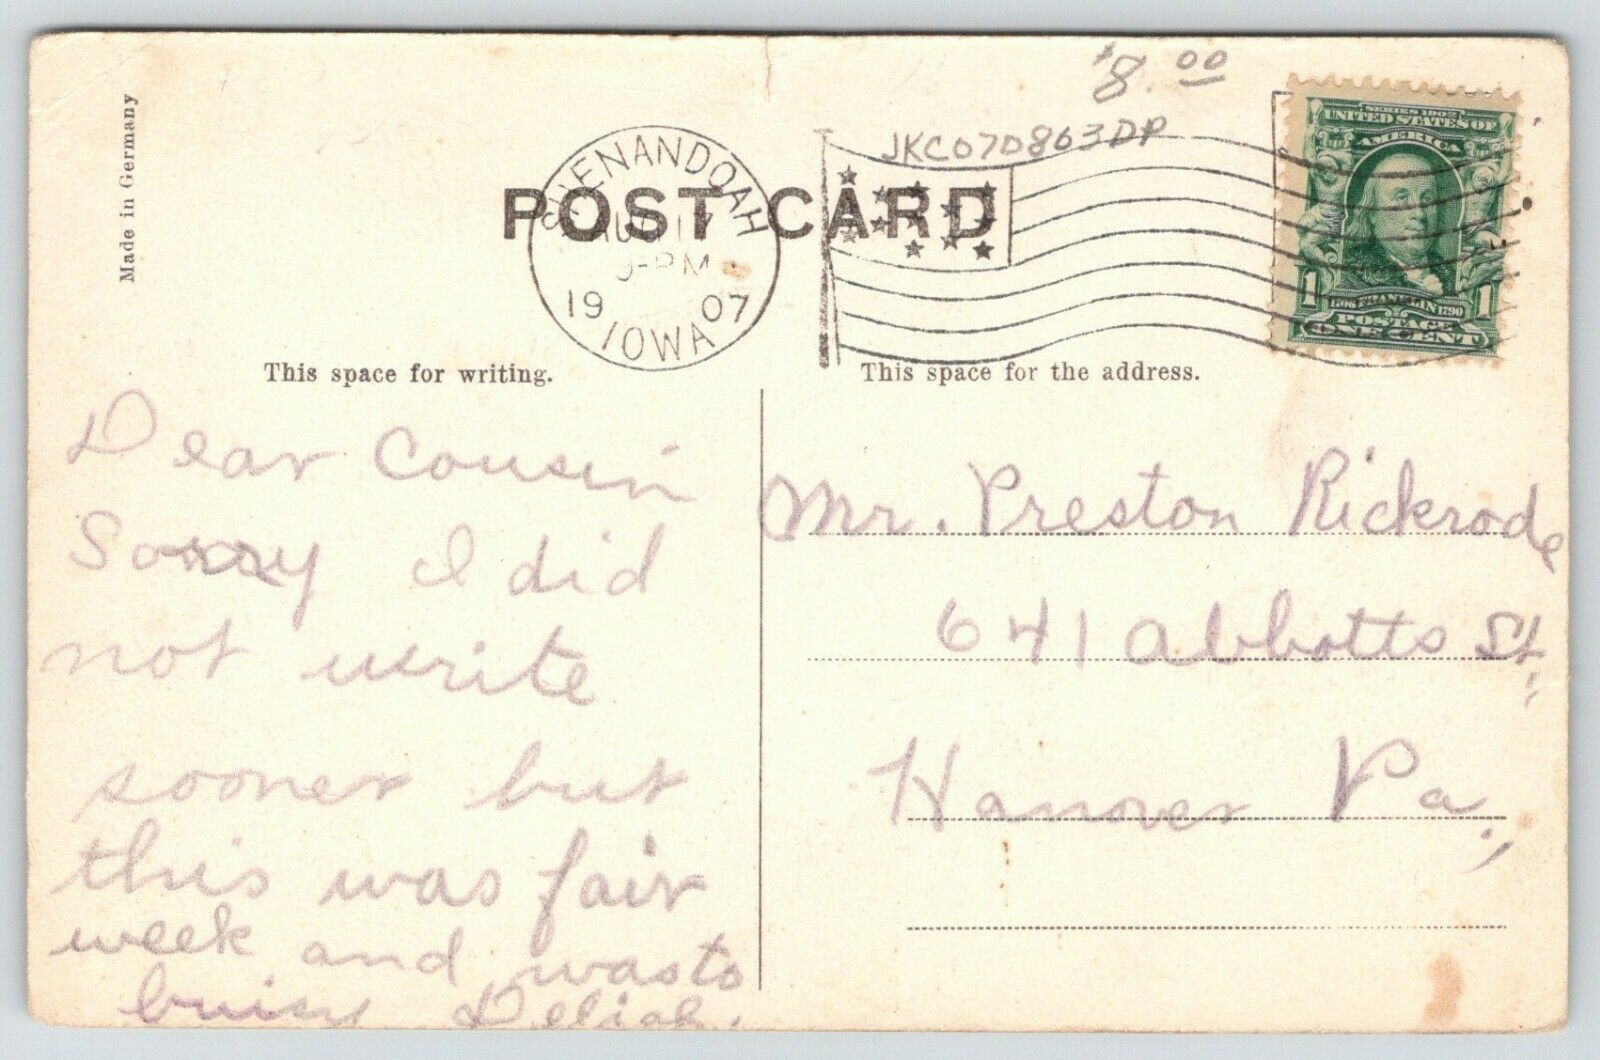 $8.00
JKC07D863DP
Made in Germany
SHENANDOAH
AUG 17
9-PM
1907
IOWA
POST CARD
SERIES 1902
UNITED STATES OF
AMERICA
1 1708 FRANKLIN 1790 1
POSTAGE
ONE CENT
This space for writing.
This space for the address.
Dear Cousin
Sorry I did
not write
sooner but
this was fair
week and was to
buisy Deliah.
Mr. Preston Rickrode
641 Abbotts St.
Hanover Pa.,